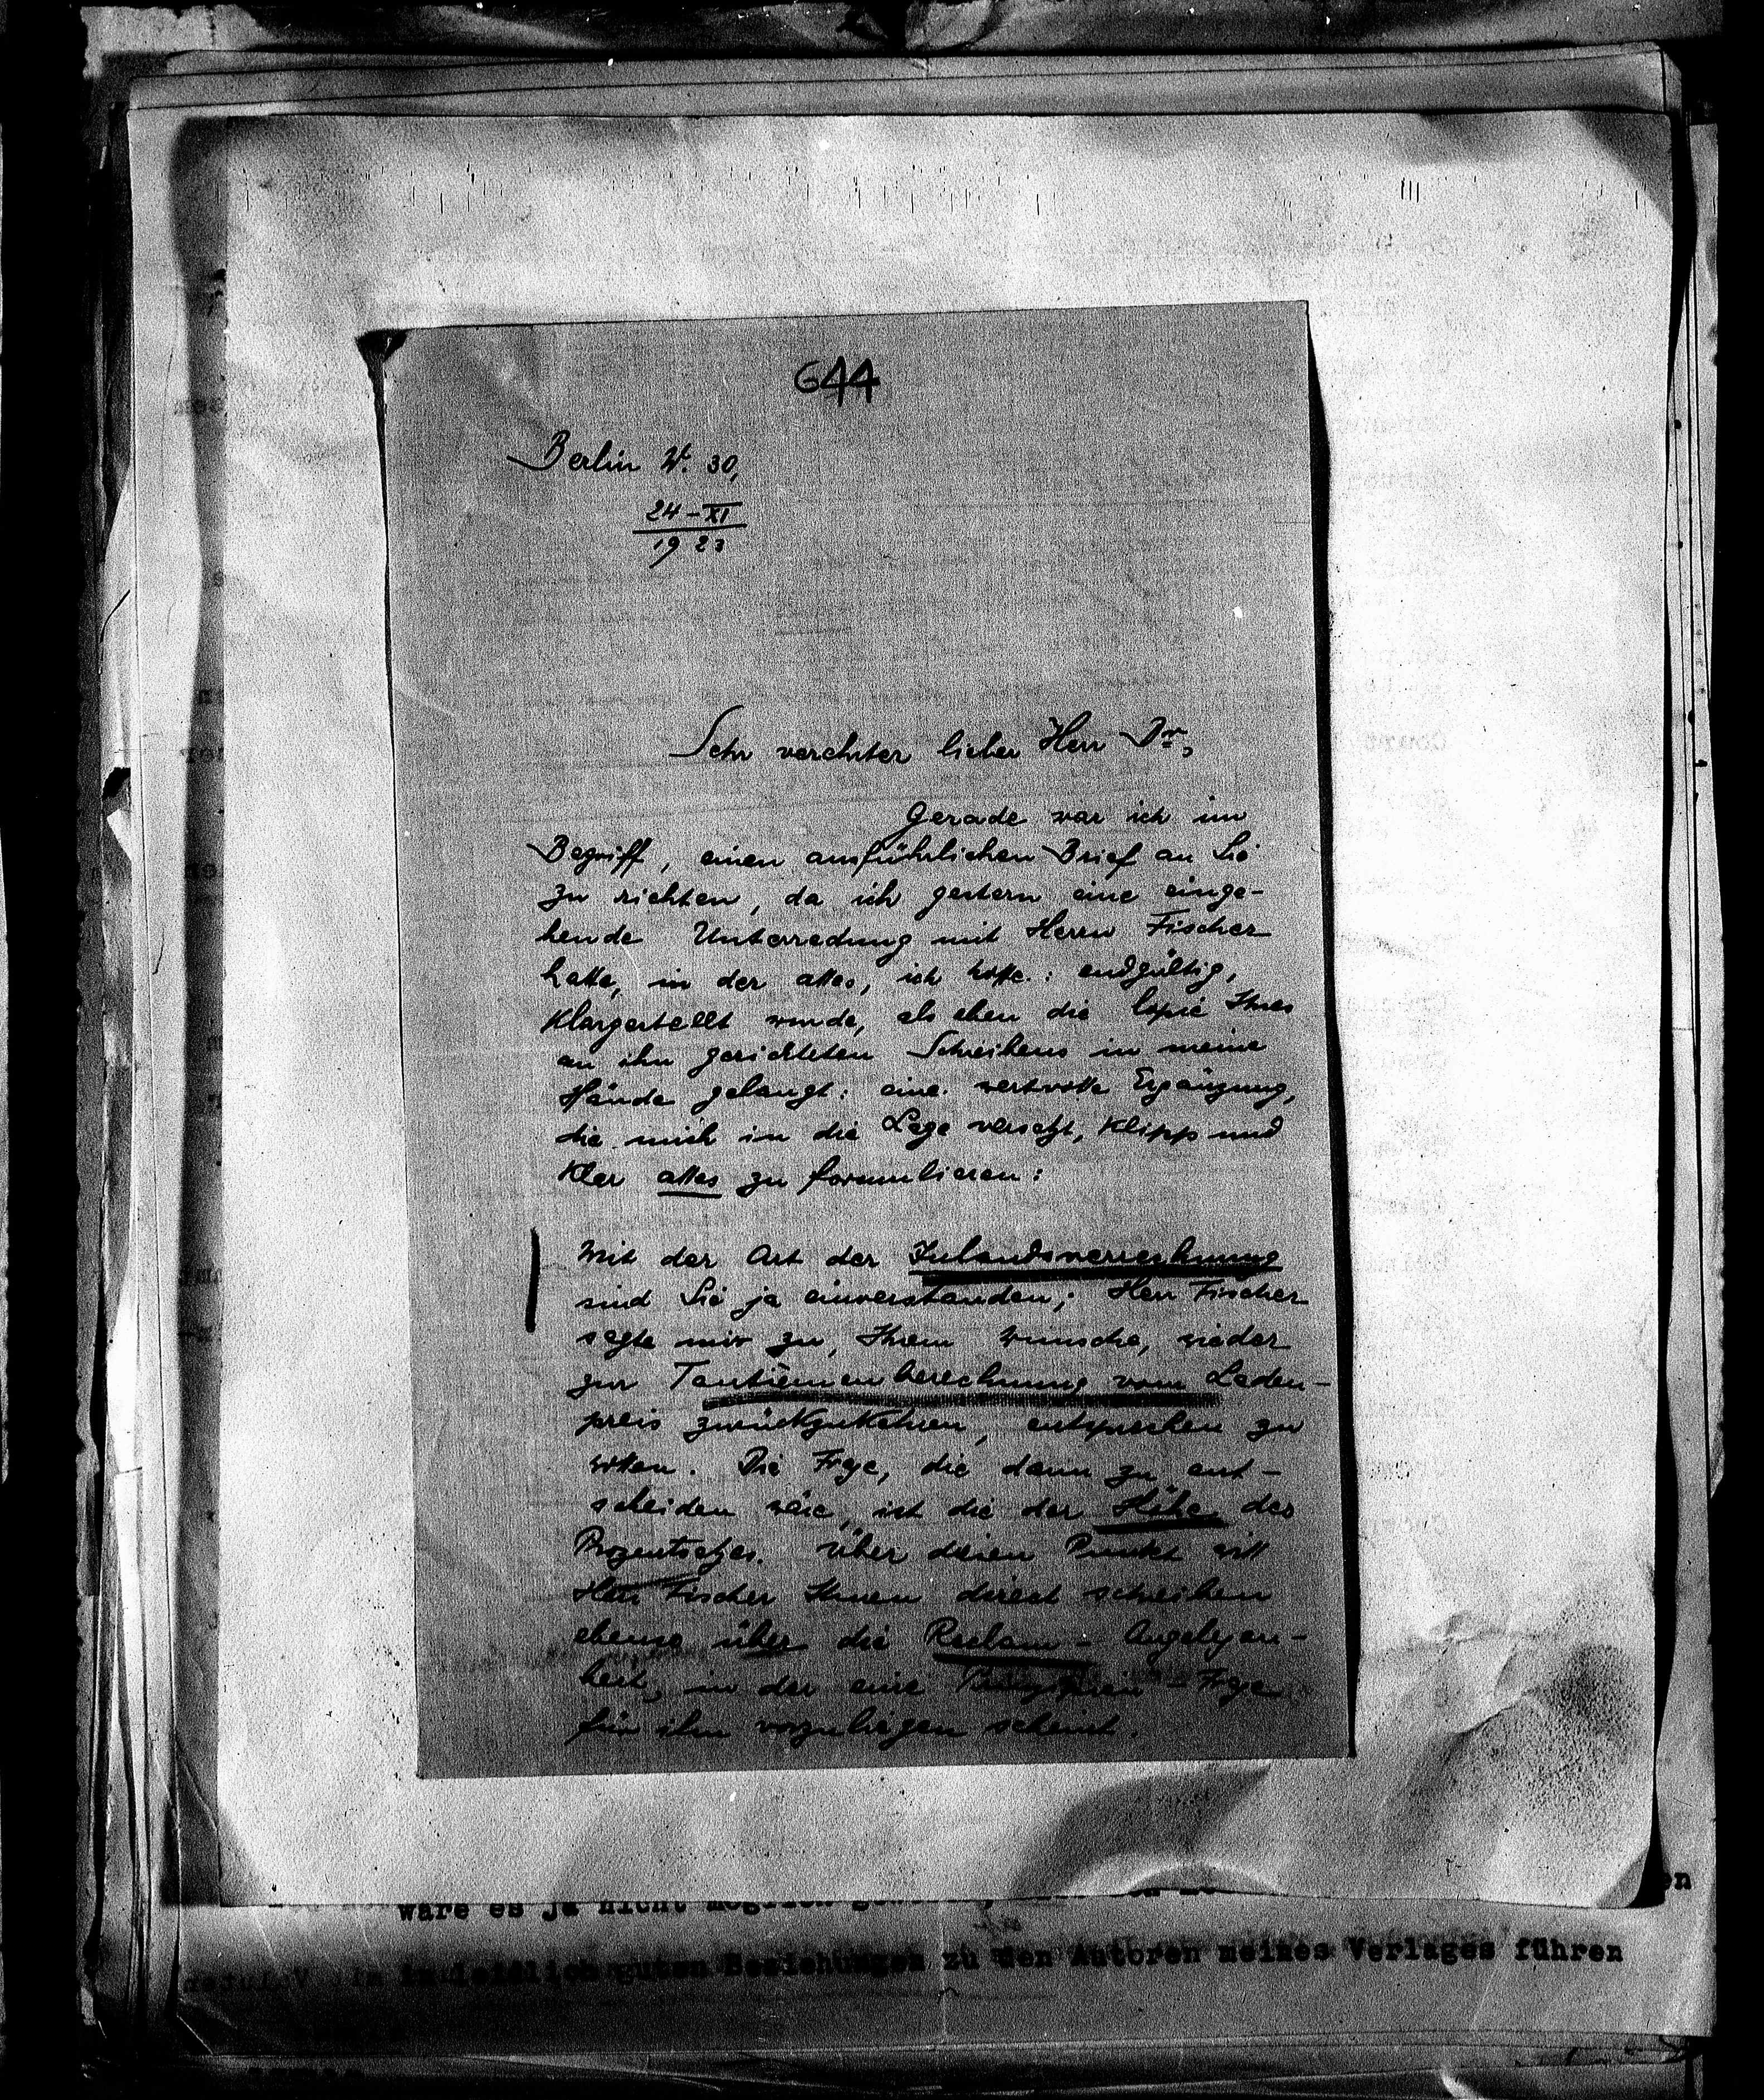 644
Berlin W. 30,
24-XI
1923
Sehr verehrter lieber Herr Dr.,
Gerade war ich im
Begriff, einen ausführlichen Brief an Sie
zu richten, da ich gestern eine einge-
hende Unterredung mit Herrn Fischer
hatte, in der alles, ich hoffe: endgültig,
klargestellt wurde, als eben die Copie Ihres
an ihn gerichteten Schreibens in meine
Hände gelangt: eine wertvolle Ergänzung,
die mich in die Lage versetzt, klipp und
klar alles zu formulieren:
Mit der Art der Inlandsverrechnung
sind Sie ja einverstanden; Herr Fischer
sagte mir zu, Ihrem Wunsche, wieder
zur Tantièmenberechnung vom Laden-
preis zurückzukehren, entsprechen zu
wollen. Die Frage, die dann zu ent-
scheiden wäre, ist die der Höhe des
Prozentsatzes. Über diesen Punkt will
Herr Fischer Ihnen direct schreiben
ebenso über die Reclam-Angelegen-
heit, in der eine Prinzipien-Frage
für ihn vorzuliegen scheint.
wäre es ja nicht möglich
guten Beziehungen zu den Autoren meines Verlages führen